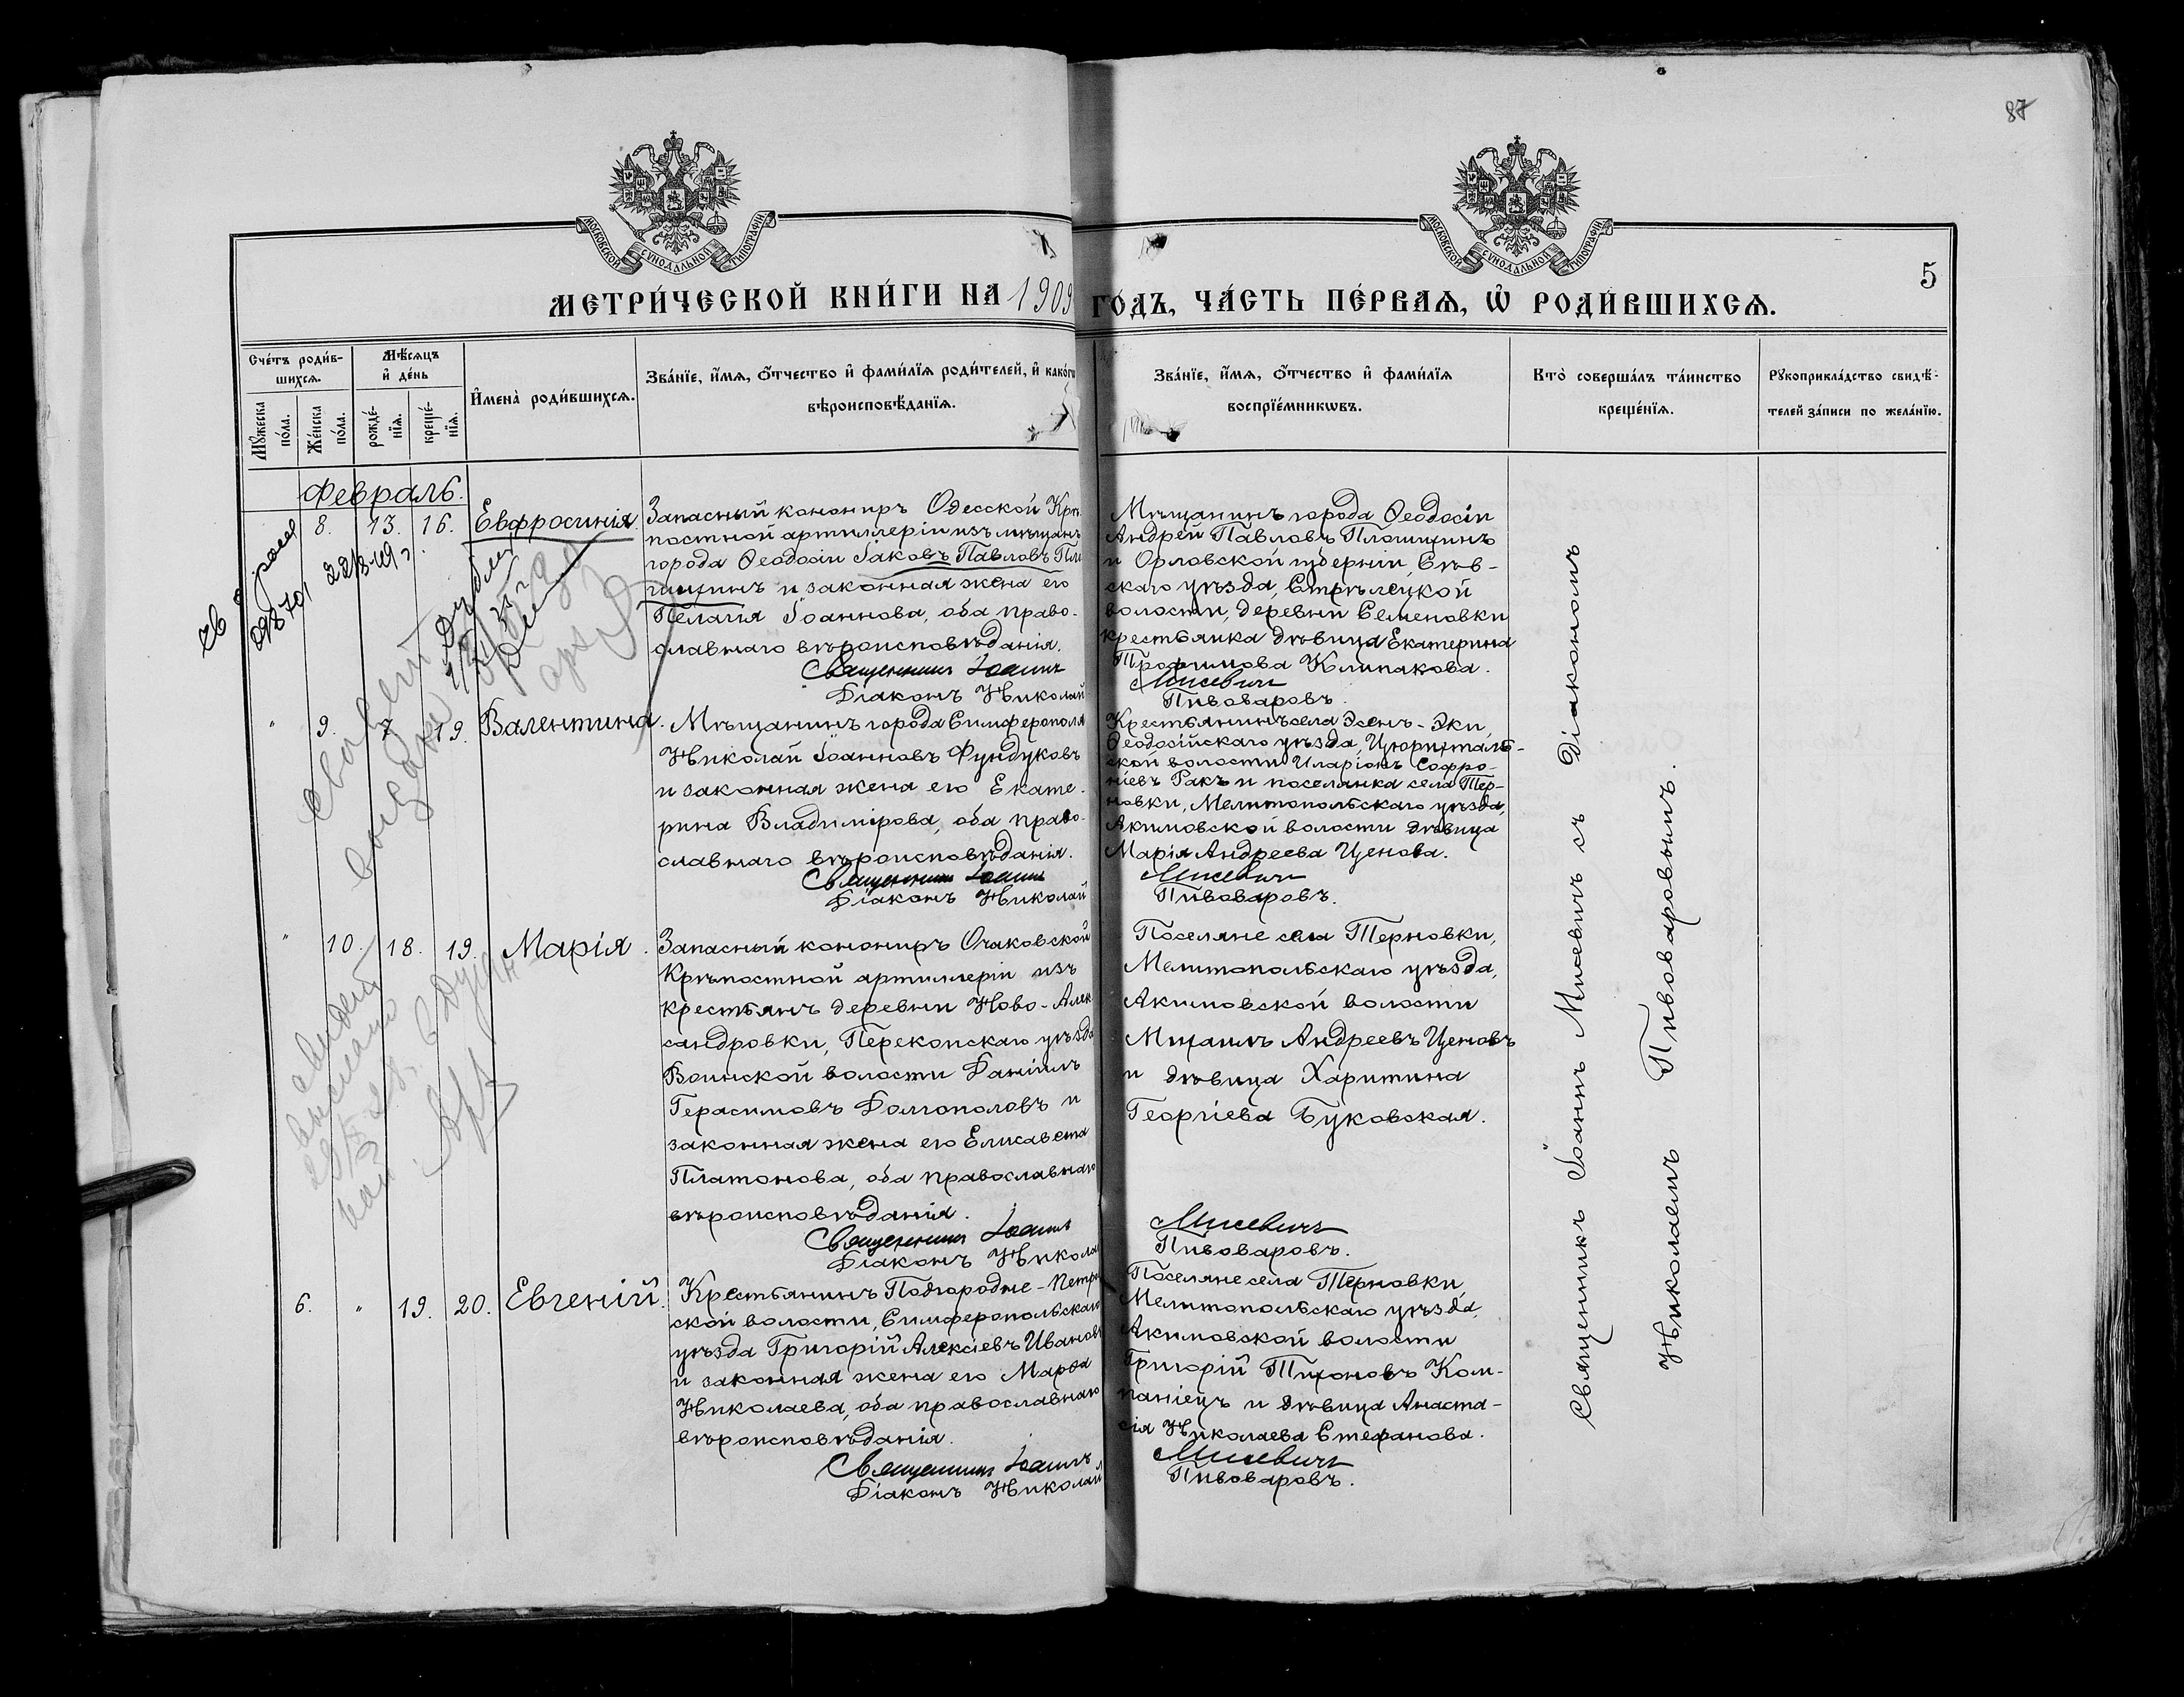 87
МОСКОВСКОЙ СУНОДАЛЬНОЙ ТИПОГРАФІИ
МОСКОВСКОЙ СУНОДАЛЬНОЙ ТИПОГРАФІИ
5
МЕТРИ́ЧЕСКОЙ КНИ́ГИ НА 1909 ГО́ДЪ, ЧА́СТЬ ПЕ́РВАѦ, Ѡ҆ РОДИ́ВШИХСѦ.
Сче́тъ роди́в-
шихсѧ.
Мꙋ́жеска
по́ла.
Же́нска
по́ла.
Мѣ́сѧцъ
и҆ де́нь
рожде́-
нїѧ.
креще́-
нїѧ.
И҆мена̀ роди́вшихсѧ.
Зва́нїе, и҆́мѧ, ѻ҆́тчество и҆ фами́лїѧ роди́телей, и҆ како́гѡ
вѣроисповѣ́данїѧ.
Зва́нїе, и҆́мѧ, ѻ҆́тчество и҆ фами́лїѧ
воспрїе́мникѡвъ.
Кто̀ соверша́лъ та́инство
креще́нїѧ.
Рꙋкоприкла́дство свидѣ́-
телей за́писи по жела́нїю.
Февраль.
8. 13. 16. Евфросинія.
Запасный кононир Одесской Крѣ
постной артиллеріи изъ мѣщанъ
города Ѳеодосіи Іаковъ Павловъ Пло
щинъ и законная жена его
Пелагія Іоаннова, оба право-
славнаго вѣроисповѣданія.
Священникъ Іоаннъ Мисевичъ
Діаконъ Николай Пивоваровъ.
Мѣщанинъ города Ѳеодосіи
Андрей Павловъ Плошщинъ
и Орловской губерніи, Сѣв-
скаго уѣзда, Стрѣлецкой
волости, деревни Семеновки
крестьянка дѣвица Екатерина
Трофимова Клипакова.
" 9. 7 19. Валентина.
Мѣщанинъ города Симферополя
Николай Іоанновъ Фундуковъ
и законная жена его Екате-
рина Владимірова, оба право-
славнаго вѣроисповѣданія.
Священникъ Іоаннъ Мисевичъ
Діаконъ Николай Пивоваровъ.
Крестьянинъ села Эсенъ-Эки,
Ѳеодосійскаго уѣзда, Цюрихталь-
ской волости Иларіонъ Софро-
ніевъ Ракъ и поселянка села Тер-
новки, Мелитопольскаго уѣзда,
Акимовской волости дѣвица
Марія Андреева Ценова.
" 10. 18. 19. Марія.
Запасный кононир Очаковской
Крѣпостной артиллеріи изъ
крестьянъ деревни Ново-Алек
сандровки, Перекопскаго уѣзда
Воинской волости Даніилъ
Герасимовъ Долгополовъ и
законная жена его Елисавета
Платонова, оба православнаго
вѣроисповѣданія.
Священникъ Іоаннъ Мисевичъ
Діаконъ Николай Пивоваровъ.
Поселяне села Терновки,
Мелитопольскаго уѣзда,
Акимовской волости
Михаилъ Андреевъ Ценовъ
и дѣвица Харитина
Георгіева Буковская.
6. " 19. 20. Евгеній.
Крестьянинъ Подгородне-Петров
ской волости, Симферопольскаго
уѣзда Григорій Алексіевъ Ивановъ
и законная жена его Марѳа
Николаева, оба православнаго
вѣроисповѣданія.
Священникъ Іоаннъ Мисевичъ
Діаконъ Николай Пивоваровъ.
Поселяне села Терновки,
Мелитопольскаго уѣзда,
Акимовской волости
Григорій Тихоновъ Ком-
паніецъ и дѣвица Анаста-
сія Николаева Стефанова.
Священникъ Іоаннъ Мисевичъ съ Діакономъ
Николаемъ Пивоваровымъ.